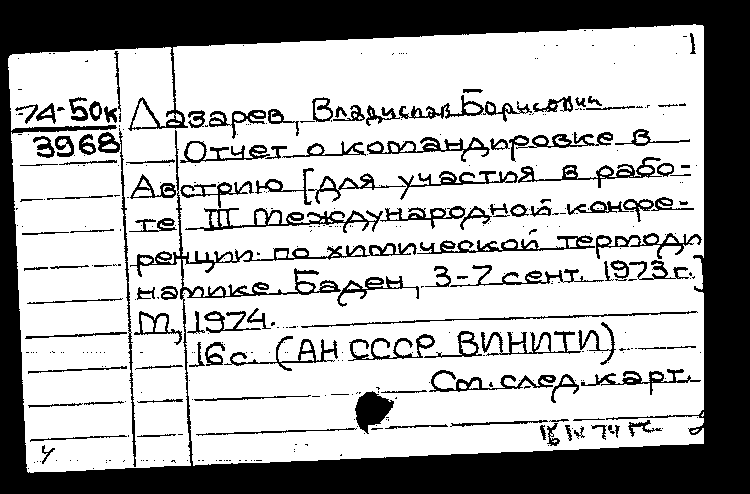 1
74-50к Лазарев, Владислав Борисович
3968 Отчет о командировке в
Австрию [для участия в рабо-
те III международной конфе-
ренции по химической термоди
намике. Баден, 3-7 сент. 1973г.]
М., 1974.
16с. (АН СССР. ВИНИТИ).
См. след. карт.
16 IV 74